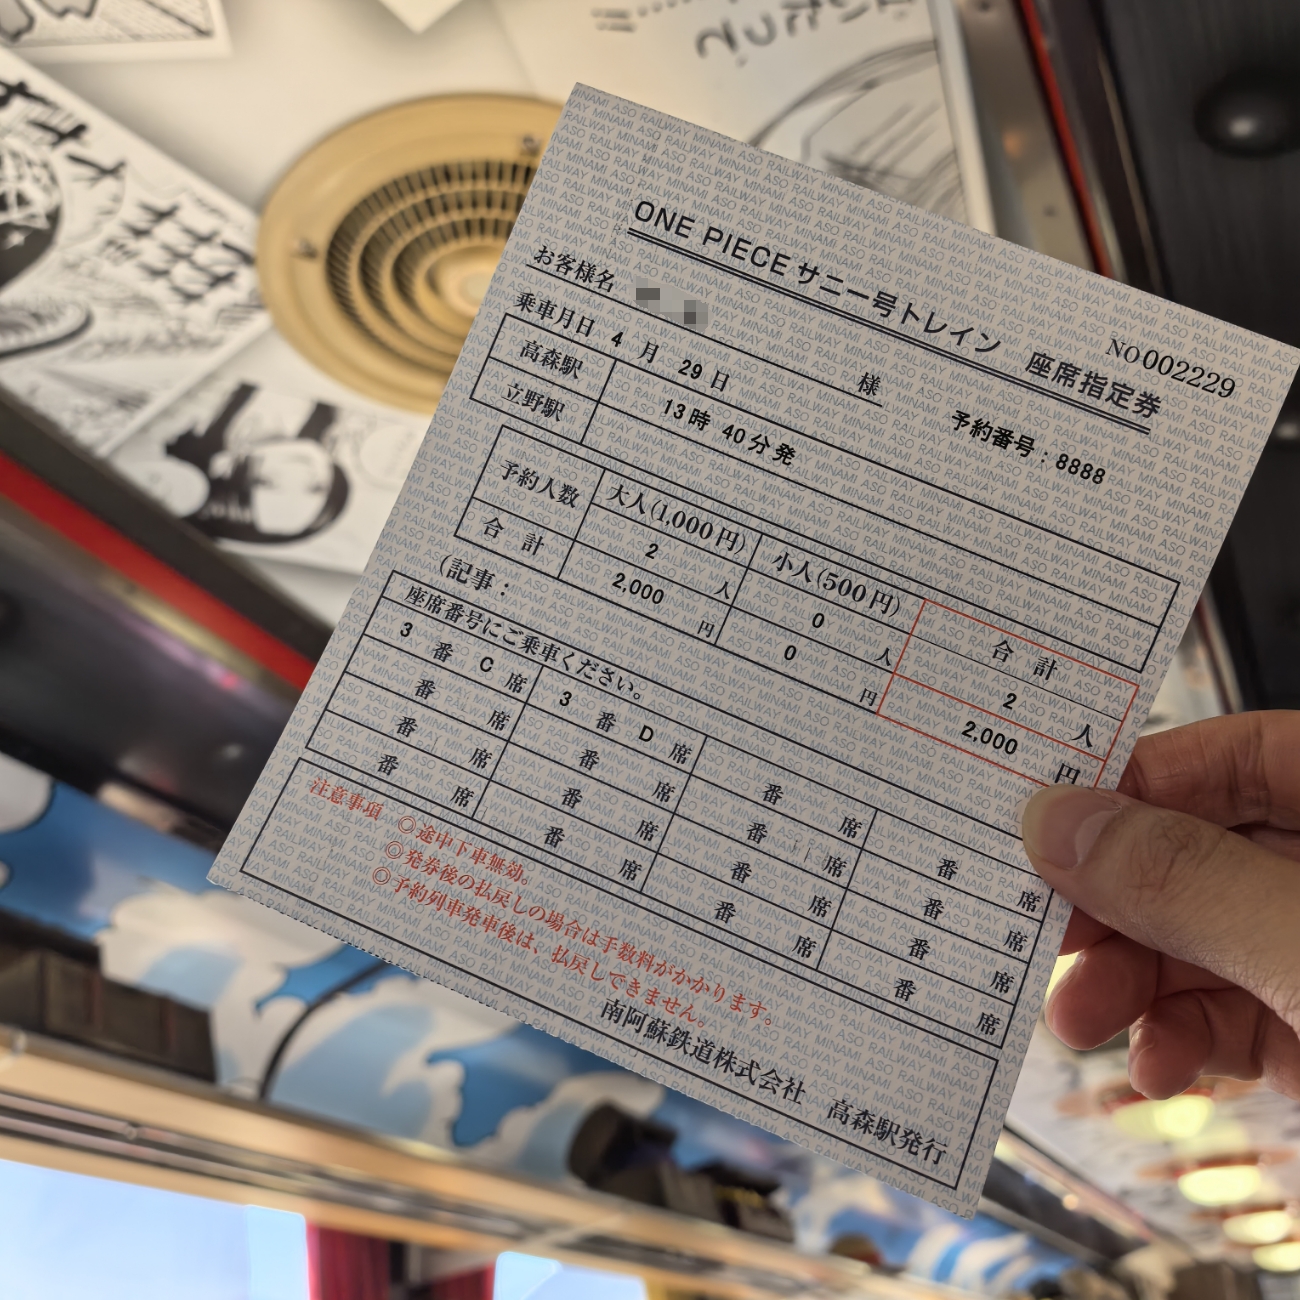 ONE PIECE サニー号トレイン 座席指定券
NO 002229
お客様名 様
予約番号：8888
乗車月日 4 月 29 日
高森駅 13時 40分 発
立野駅
予約人数 大人(1,000円) 小人(500円) 合 計
2 人 0 人 2 人
合 計 2,000 円 0 円 2,000 円
(記事：
座席番号にご乗車ください。
3 番 C 席 3 番 D 席 番 席 番 席
番 席 番 席 番 席 番 席
番 席 番 席 番 席 番 席
番 席 番 席 番 席 番 席
注意事項 ◎途中下車無効。
◎発券後の払戻しの場合は手数料がかかります。
◎予約列車発車後は、払戻しできません。
南阿蘇鉄道株式会社 高森駅発行
MINAMI ASO RAILWAY